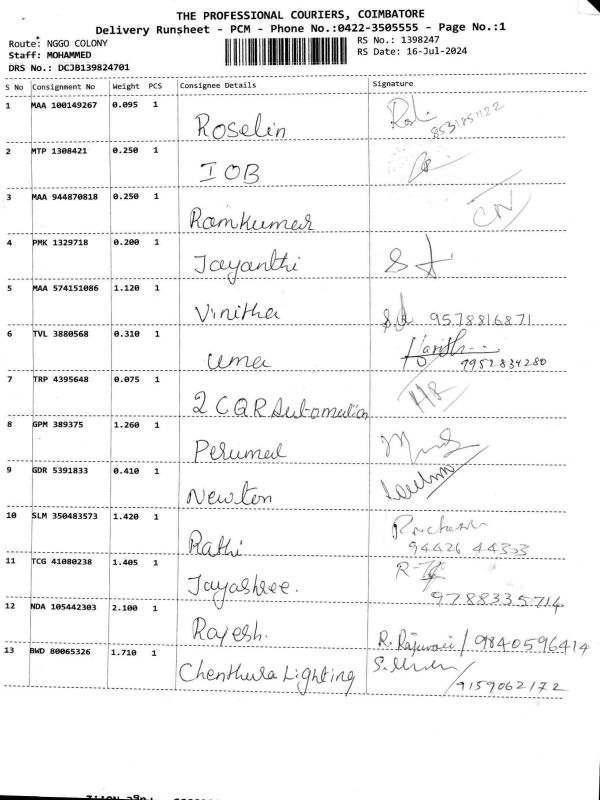 THE PROFESSIONAL COURIERS, COIMBATORE
Delivery Runsheet - PCM - Phone No.:0422-3505555 - Page No.:1
Route: NGGO COLONY RS No.: 1398247
Staff: MOHAMMED RS Date: 16-Jul-2024
DRS No.: DCJB139824701
S No Consignment No Weight PCS Consignee Details Signature
1 MAA 100149267 0.095 1 Roselin
2 MTP 1308421 0.250 1 IOB
3 MAA 944870818 0.250 1 Ramkumar
4 PMK 1329718 0.200 1 Jayanthi
5 MAA 574151086 1.120 1 Vinitha 9578816871
6 TVL 3880568 0.310 1 uma Harish 9952834280
7 TRP 4395648 0.075 1 2 CQR Automation
8 GPM 389375 1.260 1 Perumal
9 GDR 5391833 0.410 1 Newton
10 SLM 350483573 1.420 1 Rathi 94426 44333
11 TCG 41080238 1.405 1 Jayashree. 9788335714
12 NDA 105442303 2.100 1 Rajesh. 9840596414
13 BWD 80065326 1.710 1 Chenthura Lighting 9159062172